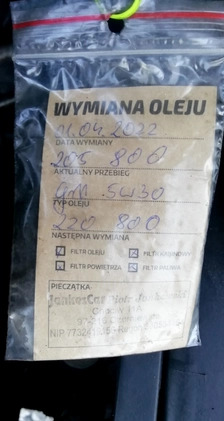 WYMIANA OLEJU
21.04.2022
DATA WYMIANY
205 800
AKTUALNY PRZEBIEG
GM 5W30
TYP OLEJU
220 800
NASTĘPNA WYMIANA
FILTR OLEJU FILTR KABINOWY
FILTR POWIETRZA FILTR PALIWA
PIECZĄTKA
NIP